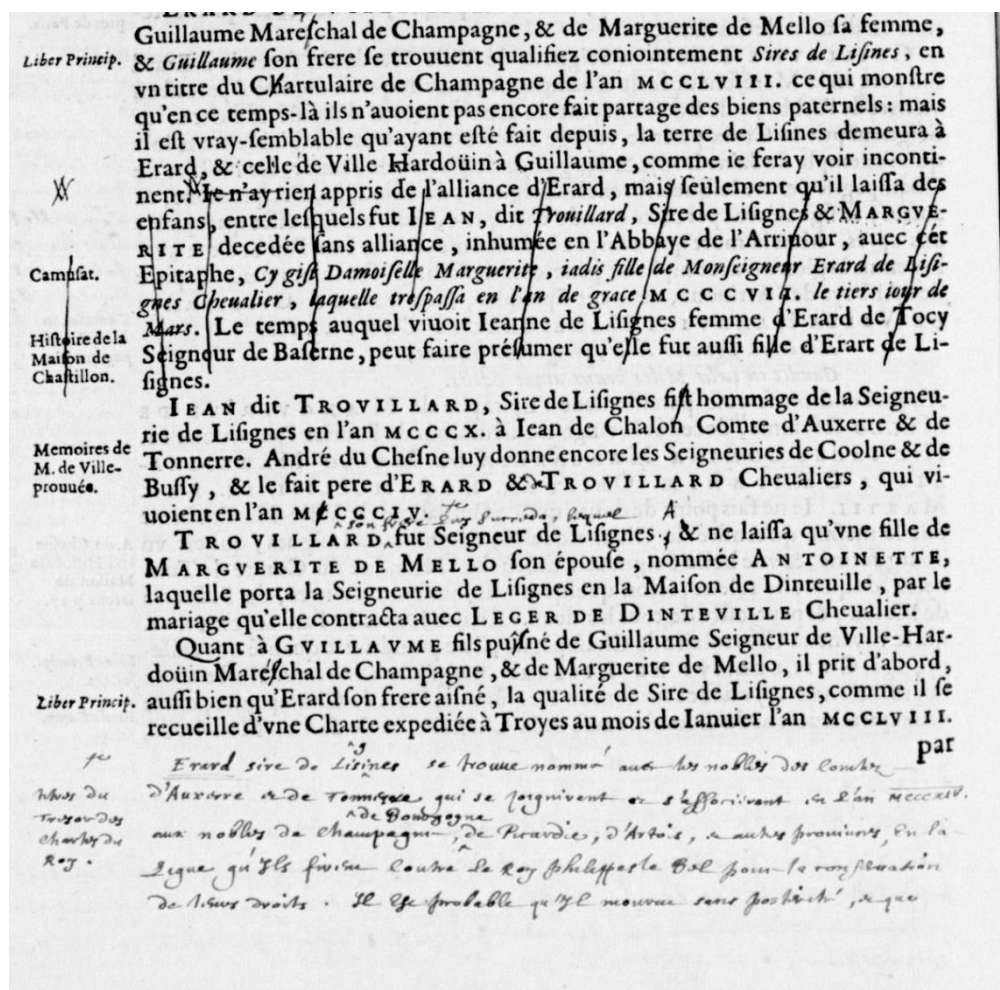 Guillaume Mareſchal de Champagne, & de Marguerite de Mello ſa femme,
Liber Princip.
& Guillaume ſon frere ſe trouuent qualifiez coniointement Sires de Liſines, en
vn titre du Chartulaire de Champagne de l'an MCCLVIII. ce qui monſtre
qu'en ce temps-là ils n'auoient pas encore fait partage des biens paternels: mais
il eſt vray-ſemblable qu'ayant eſté fait depuis, la terre de Liſines demeura à
Erard, & celle de Ville-Hardoüin à Guillaume, comme ie feray voir inconti-
nent. Ie n'ay rien appris de l'alliance d'Erard, mais ſeulement qu'il laiſſa des
enfans, entre leſquels fut IEAN, dit Trouillard, Sire de Liſignes & MARGVE-
RITE decedée ſans alliance, inhumée en l'Abbaye de l'Arriuour, auec cét
Camuſat.
Epitaphe, Cy giſt Damoiſelle Marguerite, iadis fille de Monſeigneur Erard de Liſi-
gnes Cheualier, laquelle treſpaſſa en l'an de grace MCCCVII. le tiers iour de
Mars. Le temps auquel viuoit Ieanne de Liſignes femme d'Erard de Tocy
Hiſtoire de la
Maiſon de
Chaſtillon.
Seigneur de Baſerne, peut faire préſumer qu'elle fut auſſi fille d'Erart de Li-
ſignes.
IEAN dit TROVILLARD, Sire de Liſignes fiſt hommage de la Seigneu-
rie de Liſignes en l'an MCCCX. à Iean de Chalon Comte d'Auxerre & de
Memoires de
M. de Ville-
prouuée.
Tonnerre. André du Cheſne luy donne encore les Seigneuries de Coolne & de
Buſſy, & le fait pere d'ERARD & TROVILLARD Cheualiers, qui vi-
uoient en l'an MCCCIV.
ſon frere luy ſucceda, lequel
TROVILLARD fut Seigneur de Liſignes, & ne laiſſa qu'vne fille de
MARGVERITE DE MELLO ſon épouſe, nommée ANTOINETTE,
laquelle porta la Seigneurie de Liſignes en la Maiſon de Dinteuille, par le
mariage qu'elle contracta auec LEGER DE DINTEVILLE Cheualier.
Quant à GVILLAVME fils puiſné de Guillaume Seigneur de Ville-Har-
doüin Mareſchal de Champagne, & de Marguerite de Mello, il prit d'abord,
Liber Princip.
auſſi bien qu'Erard ſon frere aiſné, la qualité de Sire de Liſignes, comme il ſe
recueille d'vne Charte expediée à Troyes au mois de Ianuier l'an MCCLVIII.
par
Erard sire de Lisignes se trouue nommé auec les nobles des comtez
titres du
Tresor des
Chartes du
Roy.
d'Auxerre et de Tonnerre, qui se joignirent et s'associerent en l'an MCCCXIV.
aux nobles de Champagne, de Bourgogne, de Picardie, d'Artois, & autres prouinces, en la
Ligue qu'Ils firent contre Le Roy Philippes le Bel pour la conseruation
de leurs droits. Il Est probable qu'Il mourut sans posterité, & que